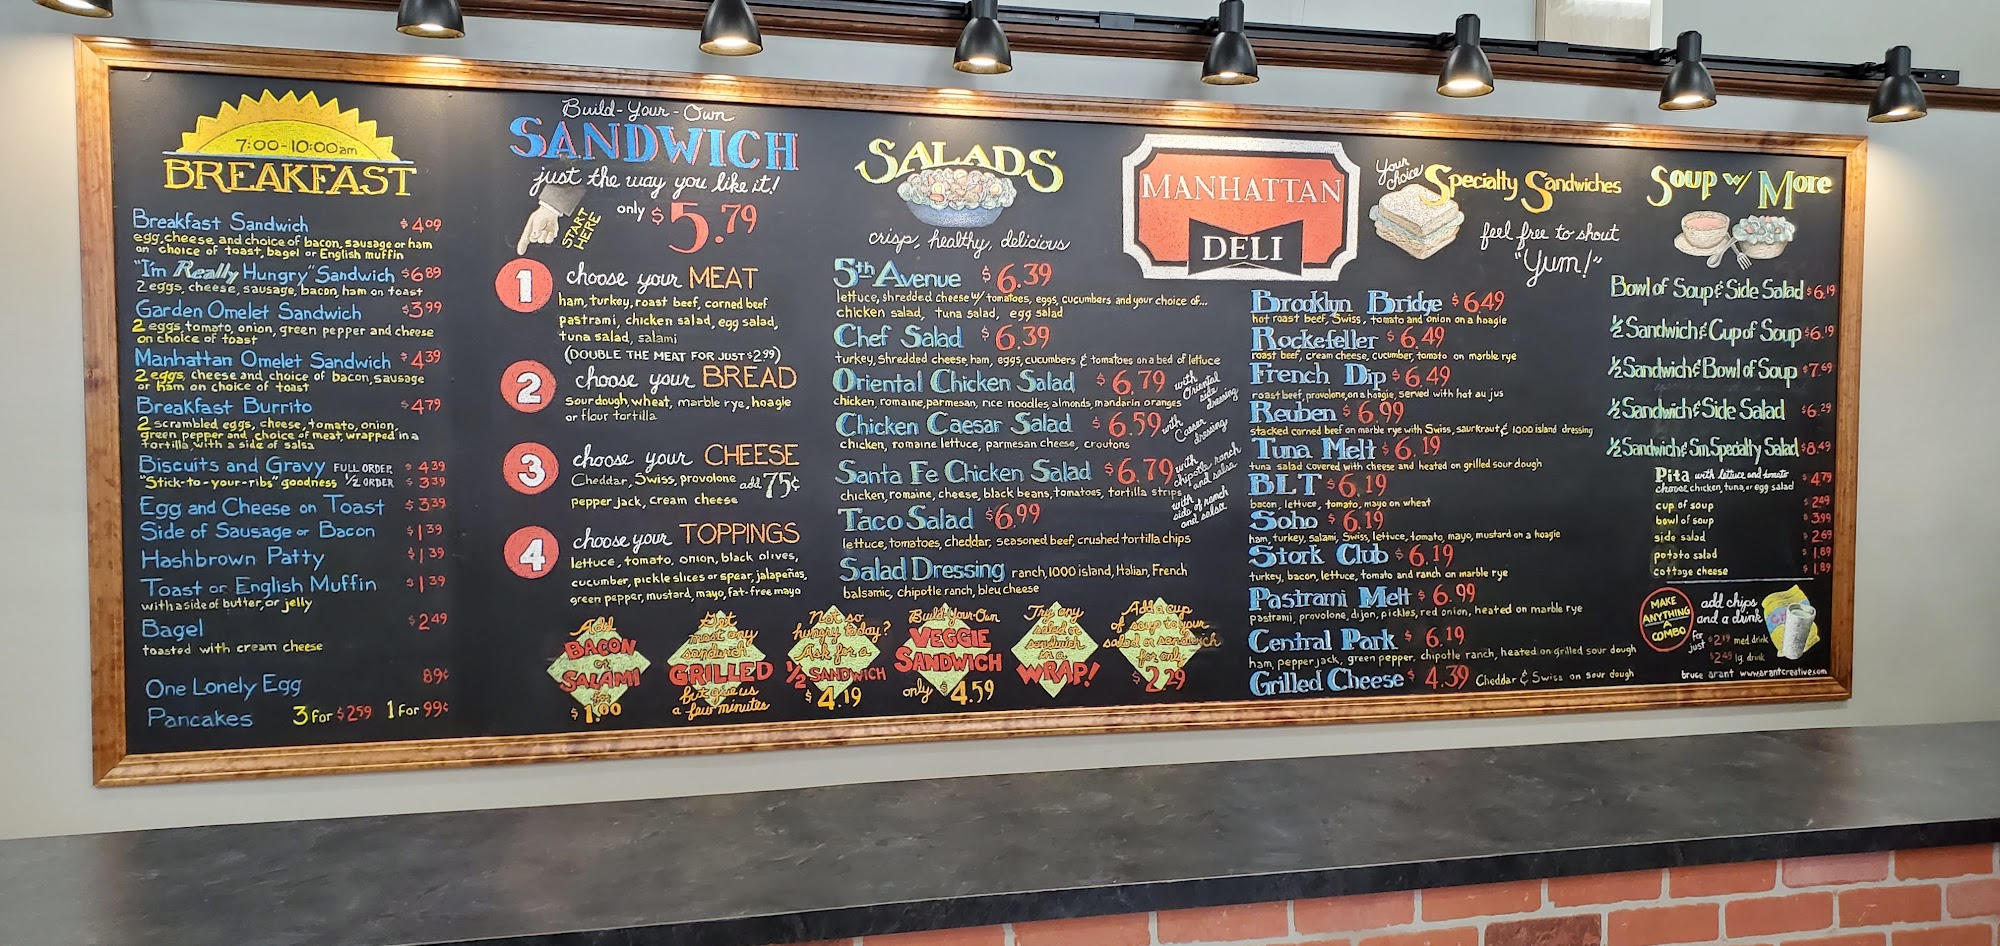 7:00-10:00am
BREAKFAST
Breakfast Sandwich $4.09
egg, cheese and choice of bacon, sausage or ham
on choice of toast, bagel or English muffin
"I'm Really Hungry" Sandwich $6.89
2 eggs, cheese, sausage, bacon, ham on toast
Garden Omelet Sandwich $3.99
2 eggs, tomato, onion, green pepper and cheese
on choice of toast
Manhattan Omelet Sandwich $4.39
2 eggs, cheese and choice of bacon, sausage
or ham on choice of toast
Breakfast Burrito $4.79
2 scrambled eggs, cheese, tomato, onion,
green pepper and choice of meat, wrapped in a
tortilla, with a side of salsa
Biscuits and Gravy FULL ORDER $4.39
"Stick-to-your-ribs" goodness 1/2 ORDER $3.39
Egg and Cheese on Toast $3.39
Side of Sausage or Bacon $1.39
Hashbrown Patty $1.39
Toast or English Muffin $1.39
with a side of butter, or jelly
Bagel $2.49
toasted with cream cheese
One Lonely Egg 89¢
Pancakes 3 for $2.59 1 for 99¢
Build-Your-Own
SANDWICH
just the way you like it!
START HERE
only $5.79
1 choose your MEAT
ham, turkey, roast beef, corned beef
pastrami, chicken salad, egg salad,
tuna salad, salami
(DOUBLE THE MEAT FOR JUST $2.99)
2 choose your BREAD
sourdough, wheat, marble rye, hoagie
or flour tortilla
3 choose your CHEESE
Cheddar, Swiss, provolone add 75¢
pepper jack, cream cheese
4 choose your TOPPINGS
lettuce, tomato, onion, black olives,
cucumber, pickle slices or spear, jalapeños,
green pepper, mustard, mayo, fat-free mayo
Add
BACON
or
SALAMI
for
$1.00
Get
most any
sandwich
GRILLED
but give us
a few minutes
Not so
hungry today?
Ask for a
1/2 SANDWICH
$4.19
Build-Your-Own
VEGGIE
SANDWICH
only $4.59
Try any
salad or
sandwich
in a
WRAP!
Add a cup
of soup to your
salad or sandwich
for only
$2.29
SALADS
crisp, healthy, delicious
5th Avenue $6.39
lettuce, shredded cheese w/ tomatoes, eggs, cucumbers and your choice of...
chicken salad, tuna salad, egg salad
Chef Salad $6.39
turkey, shredded cheese, ham, eggs, cucumbers & tomatoes on a bed of lettuce
Oriental Chicken Salad $6.79 with Oriental side dressing
chicken, romaine, parmesan, rice noodles, almonds, mandarin oranges
Chicken Caesar Salad $6.59 with Caesar dressing
chicken, romaine lettuce, parmesan cheese, croutons
Santa Fe Chicken Salad $6.79 with chipotle ranch and salsa
chicken, romaine, cheese, black beans, tomatoes, tortilla strips
Taco Salad $6.99 with side of ranch and salsa
lettuce, tomatoes, cheddar, seasoned beef, crushed tortilla chips
Salad Dressing ranch, 1000 island, Italian, French
balsamic, chipotle ranch, bleu cheese
MANHATTAN
DELI
Your choice
Specialty Sandwiches
feel free to shout
"Yum!"
Brooklyn Bridge $6.49
hot roast beef, Swiss, tomato and onion on a hoagie
Rockefeller $6.49
roast beef, cream cheese, cucumber, tomato on marble rye
French Dip $6.49
roast beef, provolone, on a hoagie, served with hot au jus
Reuben $6.99
stacked corned beef on marble rye with Swiss, saurkraut & 1000 island dressing
Tuna Melt $6.19
tuna salad covered with cheese and heated on grilled sour dough
BLT $6.19
bacon, lettuce, tomato, mayo on wheat
Soho $6.19
ham, turkey, salami, Swiss, lettuce, tomato, mayo, mustard on a hoagie
Stork Club $6.19
turkey, bacon, lettuce, tomato and ranch on marble rye
Pastrami Melt $6.99
pastrami, provolone, dijon, pickles, red onion, heated on marble rye
Central Park $6.19
ham, pepper jack, green pepper, chipotle ranch, heated on grilled sour dough
Grilled Cheese $4.39 Cheddar & Swiss on sour dough
Soup w/ More
Bowl of Soup & Side Salad $6.19
1/2 Sandwich & Cup of Soup $6.19
1/2 Sandwich & Bowl of Soup $7.69
1/2 Sandwich & Side Salad $6.29
1/2 Sandwich & Sm. Specialty Salad $8.49
Pita with lettuce and tomato $4.79
choose chicken, tuna, or egg salad
cup of soup $2.49
bowl of soup $3.99
side salad $2.69
potato salad $1.89
cottage cheese $1.89
MAKE
ANYTHING
A
COMBO
add chips
and a drink
for just $2.19 med drink
$2.49 lg. drink
bruce arant www.arantcreative.com